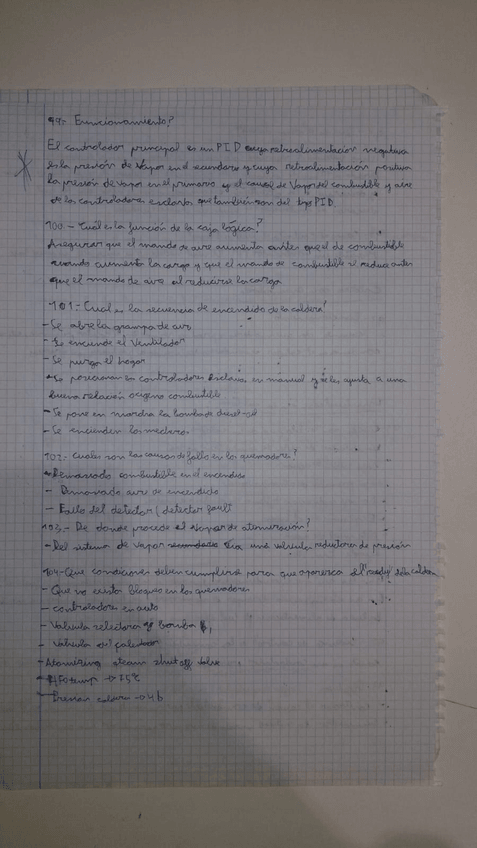 99.- Funcionamiento?
El controlador principal es un PID cuya retroalimentacion negativa
es la presión de vapor en el secundario y cuya retroalimentación positiva
la presión de vapor en el primario y el de vapor del combustible y aire
de los controladores esclavos que también son del tipo PID.
100.- Cuál es la función de la caja lógica?
Asegurar que el mando de aire aumenta antes que el de combustible
cuando aumenta la carga y que el mando de combustible se reduce antes
que el mando de aire al reducirse la carga
101.- Cual es la secuencia de encendido de la caldera?
- Se abre la de aire
- Se enciende el Ventilador
- Se purga el hogar
- Se posicionan en controladores esclavos en manual y se les ajusta a una
buena relación oxigeno combustible
- Se pone en marcha la bomba de diesel-oil
- Se encienden los mecheros
102.- Cuales son las causas de fallo en los quemadores?
- Demasiado combustible en el encendido
- Demasiado aire de encendido
- Fallo del detector / detector fault
103.- De donde procede el vapor de atomización?
- Del sistema de vapor una valvula reductora de presión
104.- Que condiciones deben cumplirse para que aparezca el "ready" de la caldera
- Que no exista bloqueo en los quemadores
- controladores en auto
- Valvula selectora bomba
- Valvula del
- Atomizing steam shut off valve
- temp -> 75°C
- Presion caldera -> 4b